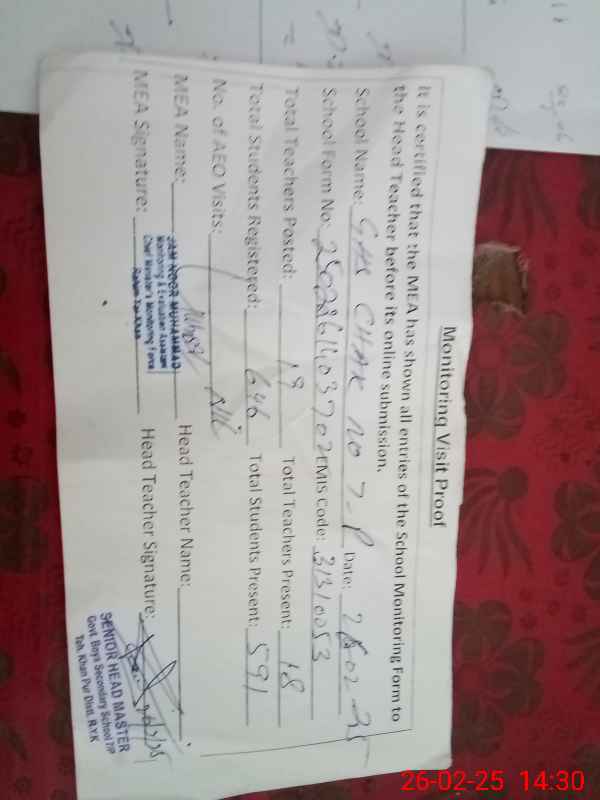 Monitoring Visit Proof
It is certified that the MEA has shown all entries of the School Monitoring Form to
the Head Teacher before its online submission.
School Name: GHS CHAK NO 7-P Date: 26-02-25
School Form No: EMIS Code: 31310053
Total Teachers Posted: 19 Total Teachers Present: 18
Total Students Registered: 646 Total Students Present: 591
No. of AEO Visits: Nil
MEA Name: Head Teacher Name:
JAM NOOR MUHAMMAD
Monitoring & Evaluation Assistant
Chief Minister's Monitoring Force
Rahim Yar Khan
MEA Signature: Head Teacher Signature:
SENIOR HEAD MASTER
Govt. Boys Secondary School 7/P
Teh. Khan Pur Distt. R.Y.K
26-02-25 14:30